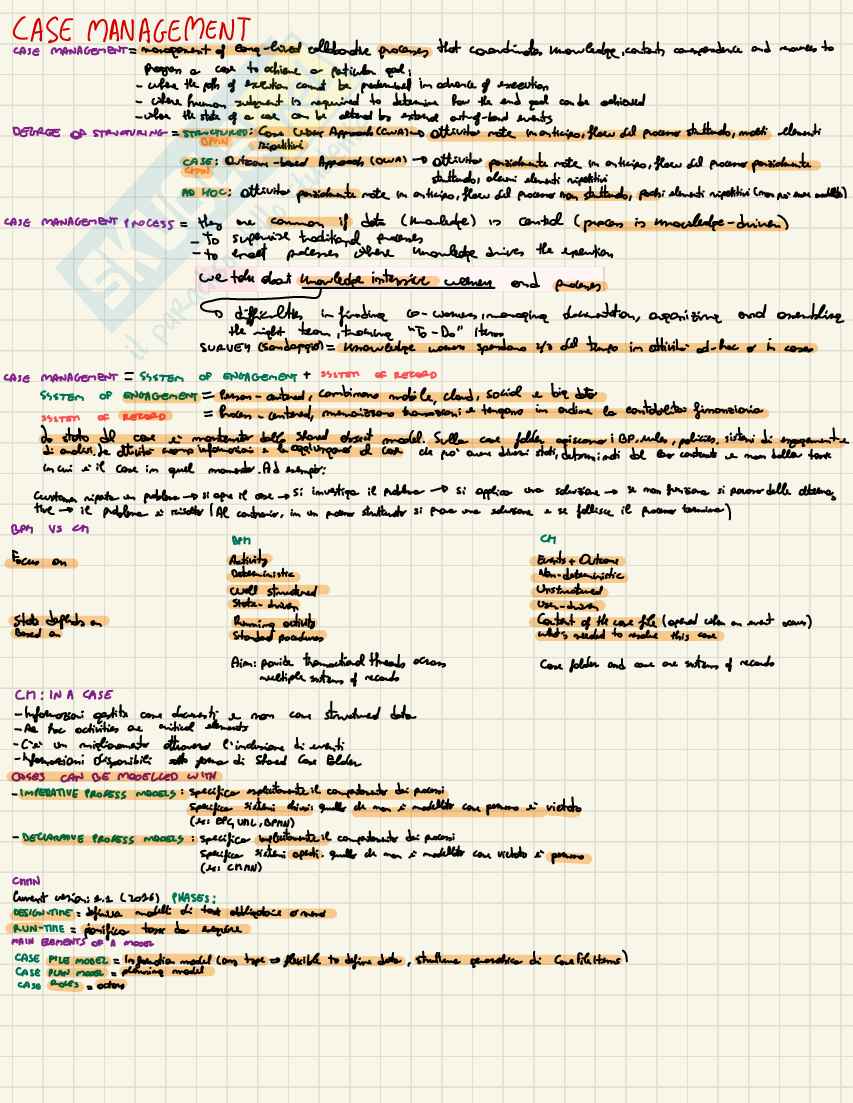 CASE MANAGEMENT
CASE MANAGEMENT = management of long-lived collaborative processes that coordinates knowledge, contents correspondence and resources to
progress a case to achieve a particular goal;
- where the path of execution cannot be predetermined in advance of execution
- where human judgment is required to determine how the end goal can be achieved
- where the state of a case can be altered by external out-of-band events
DEGREE OF STRUCTURING = STRUCTURED: Core Approach (CWA) → attività note in anticipo, flow del processo strutturato, molti elementi
BPMN ripetitivi
CASE: Outcome-based Approach (OWA) → attività parzialmente note in anticipo, flow del processo parzialmente
CMMN strutturato, alcuni elementi ripetitivi
AD HOC: attività parzialmente note in anticipo, flow del processo non strutturato, pochi elementi ripetitivi (non può essere modellato)
CASE MANAGEMENT PROCESS = they are common if data (knowledge) is central (process is knowledge-driven)
- To supervise traditional processes
- to enact processes where knowledge drives the execution
we talk about knowledge intensive workers and processes
↳ difficulties in finding co-workers, managing documentation, organizing and assembling
the right team, tracking "To-Do" Items
SURVEY (Sondaggio) = knowledge workers spendono 2/3 del tempo in attività ad-hoc o in cases
CASE MANAGEMENT = SYSTEM OF ENGAGEMENT + SYSTEM OF RECORD
SYSTEM OF ENGAGEMENT = Person-centered, combinano mobile, cloud, social e big data
SYSTEM OF RECORD = Process-centered, memorizzano transazioni e tengono in ordine la contabilità finanziaria
Lo stato del case è mantenuto dallo Shared object model. Sulla case folder agiscono i BP, rules, policies, sistemi di engagement e
di analisi. Le attività usano informazioni e le aggiungono al case che può avere diversi stati, determinati dal suo contenuto e non dalla task
in cui è il case in quel momento. Ad esempio:
Customer riporta un problema → si apre il case → si investiga il problema → si applica una soluzione → se non funziona si provano delle alterna
tive → il problema è risolto (Al contrario, in un processo strutturato si prova una soluzione e se fallisce il processo termina)
BPM VS CM
BPM CM
Focus on Activity Events + Outcome
Deterministic Non-deterministic
Well structured Unstructured
State-driven User-driven
State depends on Running activity Content of the case file (opened when an event occurs)
Based on Standard procedures what's needed to resolve this case
Aim: provide transactional threads across Case folder and case are systems of records
multiple systems of records
CM: IN A CASE
- Informazioni gestite come documenti e non come structured data
- Ad hoc activities are critical elements
- C'è un miglioramento attraverso l'inclusione di eventi
- Informazioni disponibili sotto forma di Shared Case Folder
CASES CAN BE MODELLED WITH
- IMPERATIVE PROCESS MODELS: specifica esplicitamente il comportamento dei processi
Specifica sistemi chiusi: quello che non è modellato come permesso è vietato
(es: EPC, UML, BPMN)
- DECLARATIVE PROCESS MODELS: specifica implicitamente il comportamento dei processi
Specifica sistemi aperti: quello che non è modellato come vietato è permesso
(es: CMMN)
CMMN
Current version: 1.1 (2016) PHASES:
DESIGN-TIME = definire modelli di task obbligatorie o meno
RUN-TIME = pianifico task da eseguire
MAIN ELEMENTS OF A MODEL
CASE FILE MODEL = Information model (any type → flexible to define data, struttura gerarchica di CaseFileItems)
CASE PLAN MODEL = planning model
CASE ROLES = actors